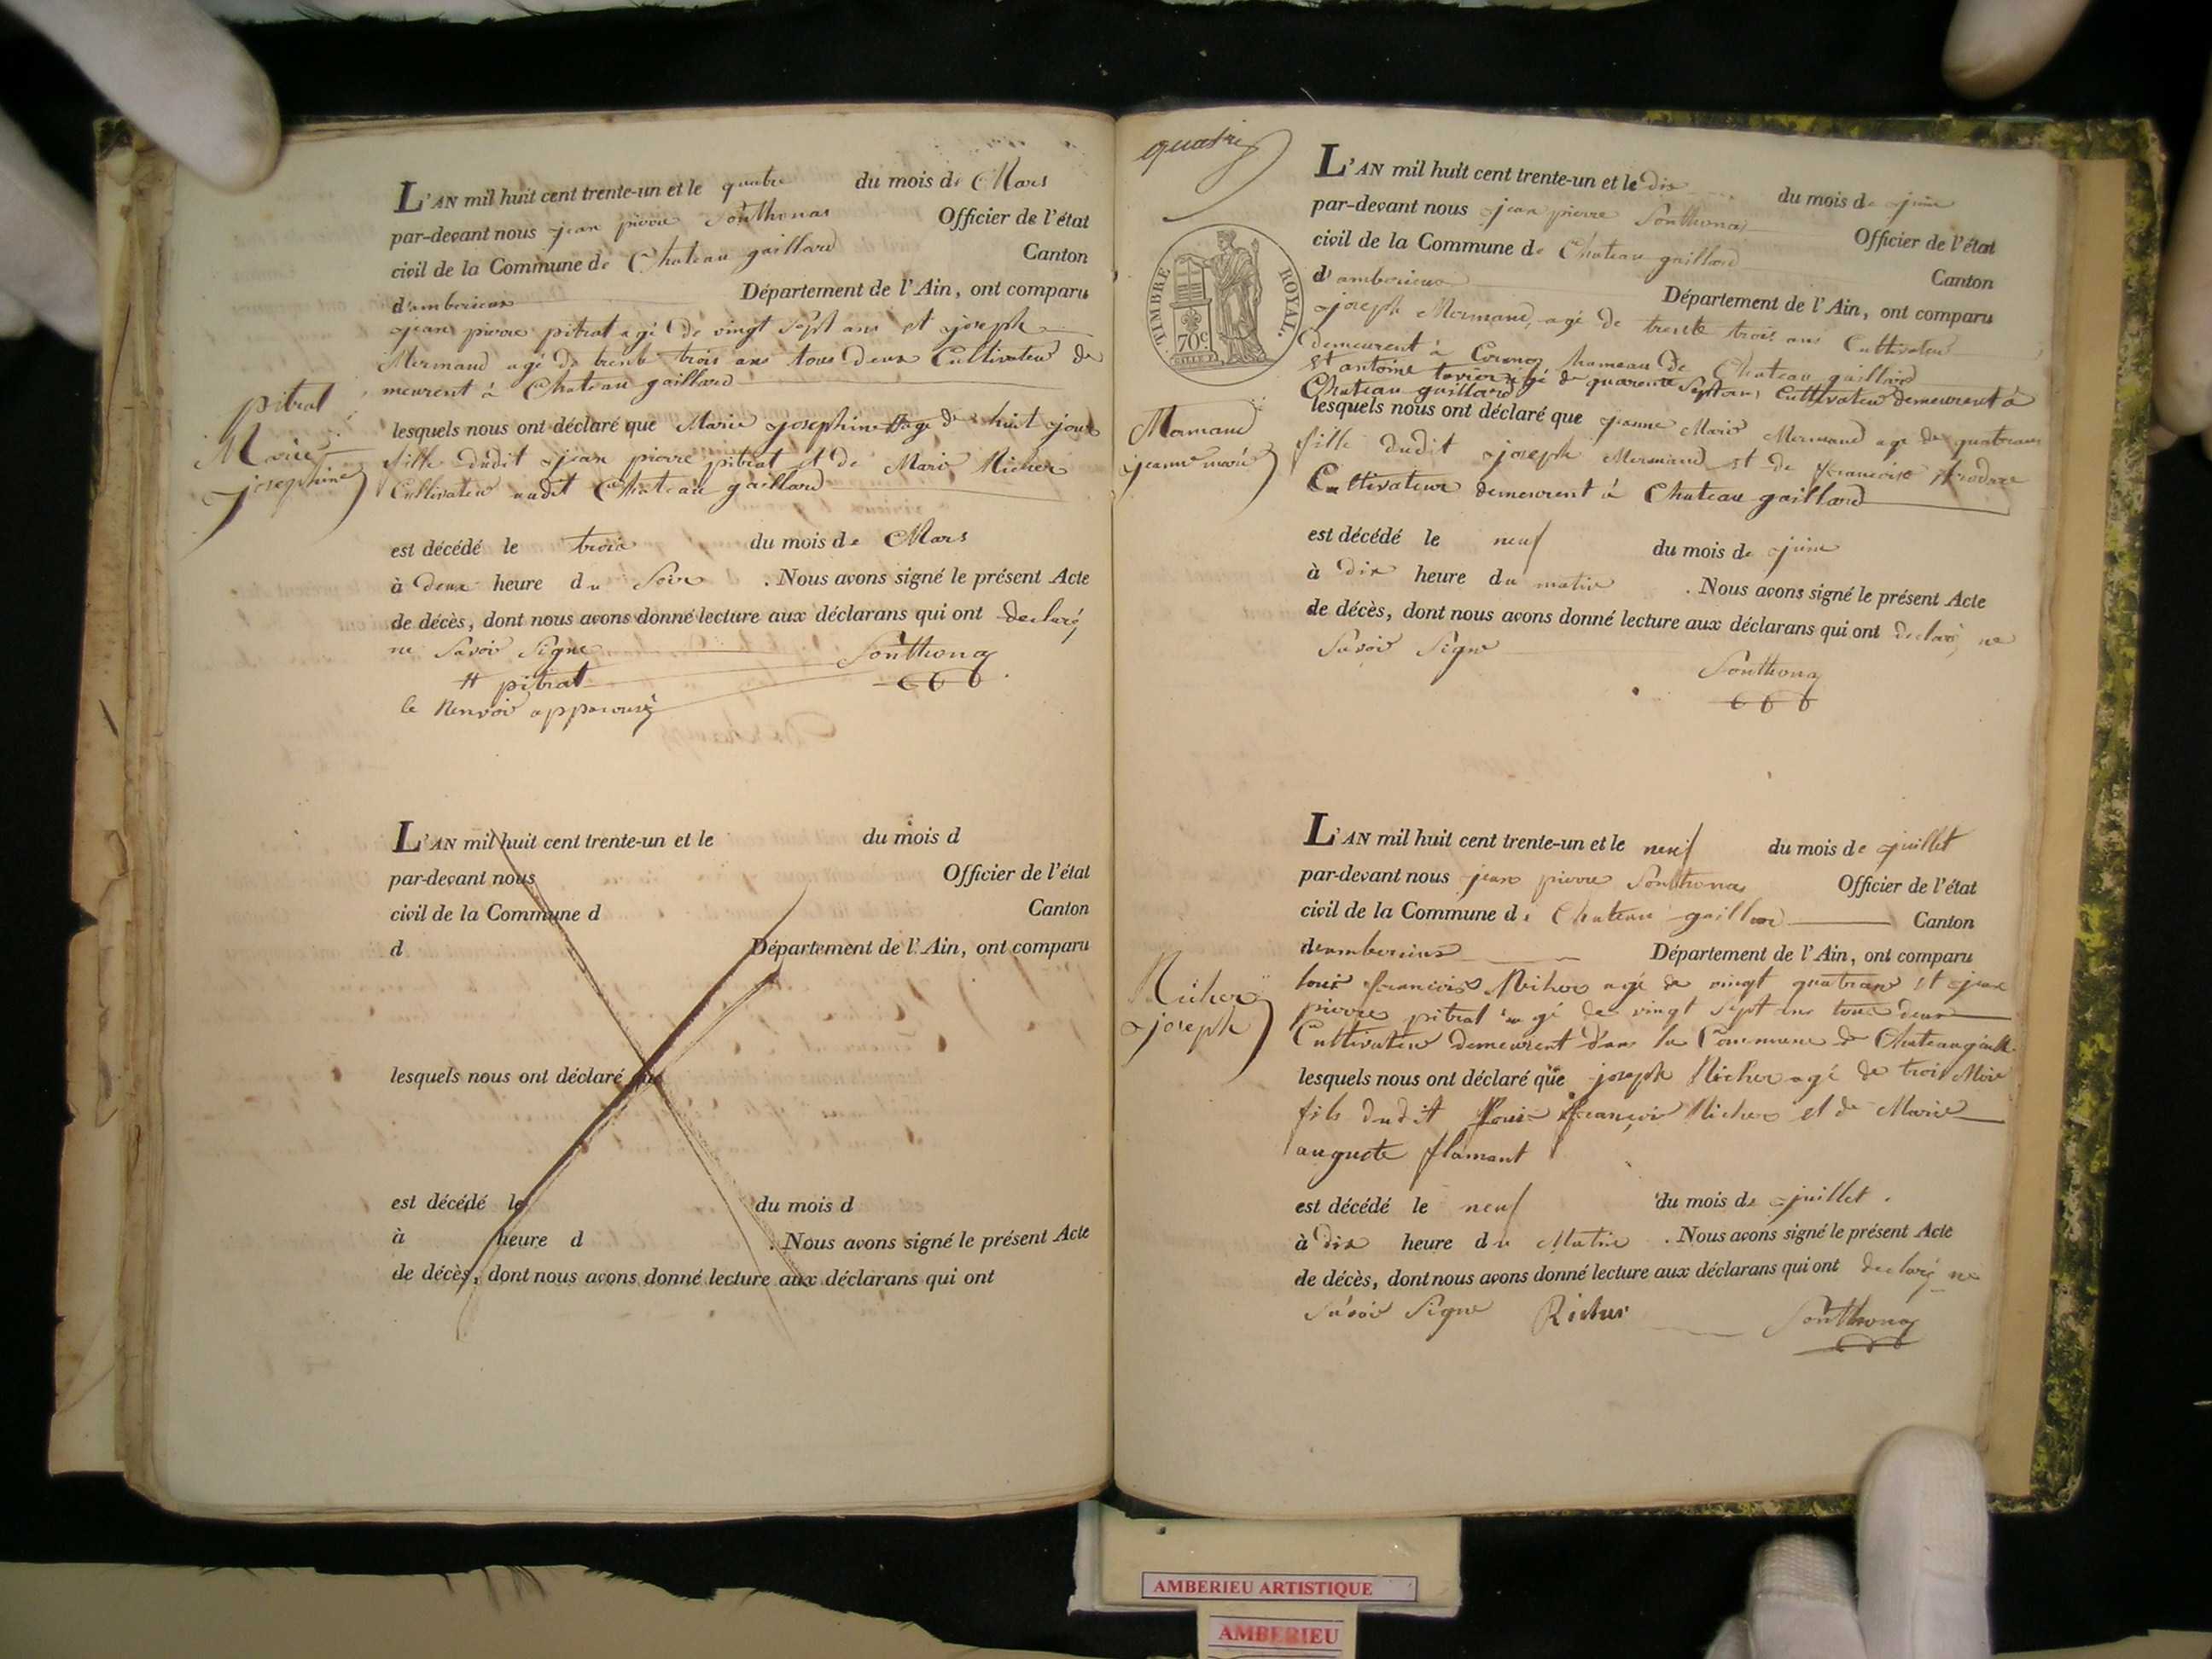 L'AN mil huit cent trente-un et le quatre du mois de Mars
par-devant nous jean pierre Ponthonas Officier de l'état
civil de la Commune de Chateau gaillard Canton
d'amberieux Département de l'Ain, ont comparu
jean pierre pitrat agé de vingt Sept ans et joseph
Mermand agé de trente trois ans tous deux Cultivateur de
meurent à Chateau gaillard
pitrat
Marie
josephine
lesquels nous ont déclaré que Marie josephine # agé de huit jours
fille dudit jean pierre pitrat et de Marie Richer
Cultivateur audit Chateau gaillard
est décédé le trois du mois de Mars
à deux heure du Soir . Nous avons signé le présent Acte
de décès, dont nous avons donné lecture aux déclarans qui ont declaré,
ne Savoir Signe
Ponthonas
# pitrat
le Renvoi approuvé
L'AN mil huit cent trente-un et le du mois d
par-devant nous Officier de l'état
civil de la Commune d Canton
d Département de l'Ain, ont comparu
lesquels nous ont déclaré que
est décédé le du mois d
à heure d . Nous avons signé le présent Acte
de décès, dont nous avons donné lecture aux déclarans qui ont
quatre
TIMBRE ROYAL.
70c.
L'AN mil huit cent trente-un et le dix du mois de juin
par-devant nous jean pierre Ponthonas Officier de l'état
civil de la Commune de Chateau gaillard Canton
d'amberieux Département de l'Ain, ont comparu
joseph Mermand, agé de trente trois ans Cultivateur
demeurent à hameau de Chateau gaillard
et antoine agé de quarente Sept ans, Cultivateur demeurent à
Chateau gaillard
Mermand
jeanne marie
lesquels nous ont déclaré que jeanne Marie Mermand agé de quatreans
fille dudit joseph Mermand et de francoise
Cultivateur demeurent à Chateau gaillard
est décédé le neuf du mois de juin
à dix heure du matin . Nous avons signé le présent Acte
de décès, dont nous avons donné lecture aux déclarans qui ont declaré, ne
Savoir Signe
Ponthonas
L'AN mil huit cent trente-un et le neuf du mois de juillet
par-devant nous jean pierre Ponthonas Officier de l'état
civil de la Commune de Chateau gaillard Canton
d'amberieux Département de l'Ain, ont comparu
louis francois Richer agé de vingt quatreans et jean
pierre pitrat agé de vingt Sept ans tous deux
Cultivateur demeurent dans la Commune de Chateaugaill
Richer
joseph
lesquels nous ont déclaré que joseph Richer agé de trois Mois
fils dudit Louis françois Richer et de Marie
auguste flamant
est décédé le neuf du mois de juillet .
à dix heure du Matin . Nous avons signé le présent Acte
de décès, dont nous avons donné lecture aux déclarans qui ont declaré ne
Savoir Signe Richer Ponthonas
AMBERIEU ARTISTIQUE
AMBERIEU